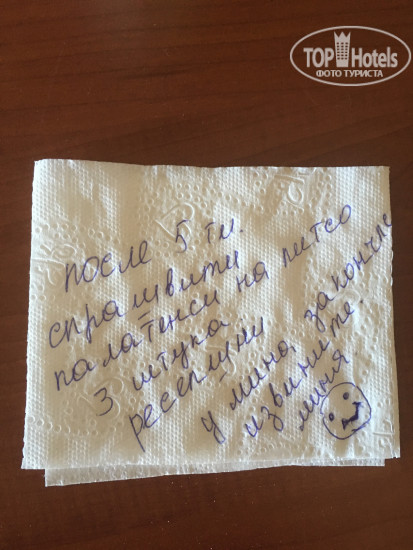 TOP Hotels
ФОТО ТУРИСТА
после 5 ти.
спрашвити
палатенси на литсо
3 штука
ресепшун.
у мина закончле
извените.
миня